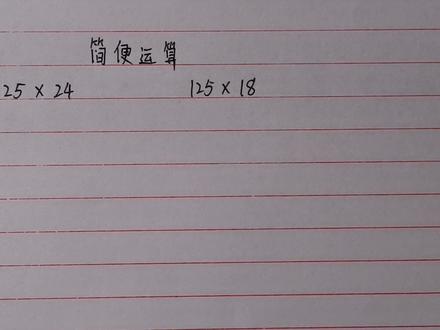 简便运算
25 × 24 125 × 18